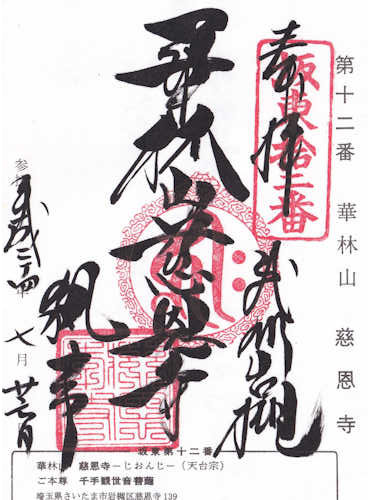 第十二番 華林山 慈恩寺
坂東拾二番
奉拝
武州岩槻
華林山慈恩寺
執事
平成二十四年
七月
坂東第十二番
華林山 慈恩寺―じおんじ―(天台宗)
ご本尊 千手観世音菩薩
埼玉県さいたま市岩槻区慈恩寺139